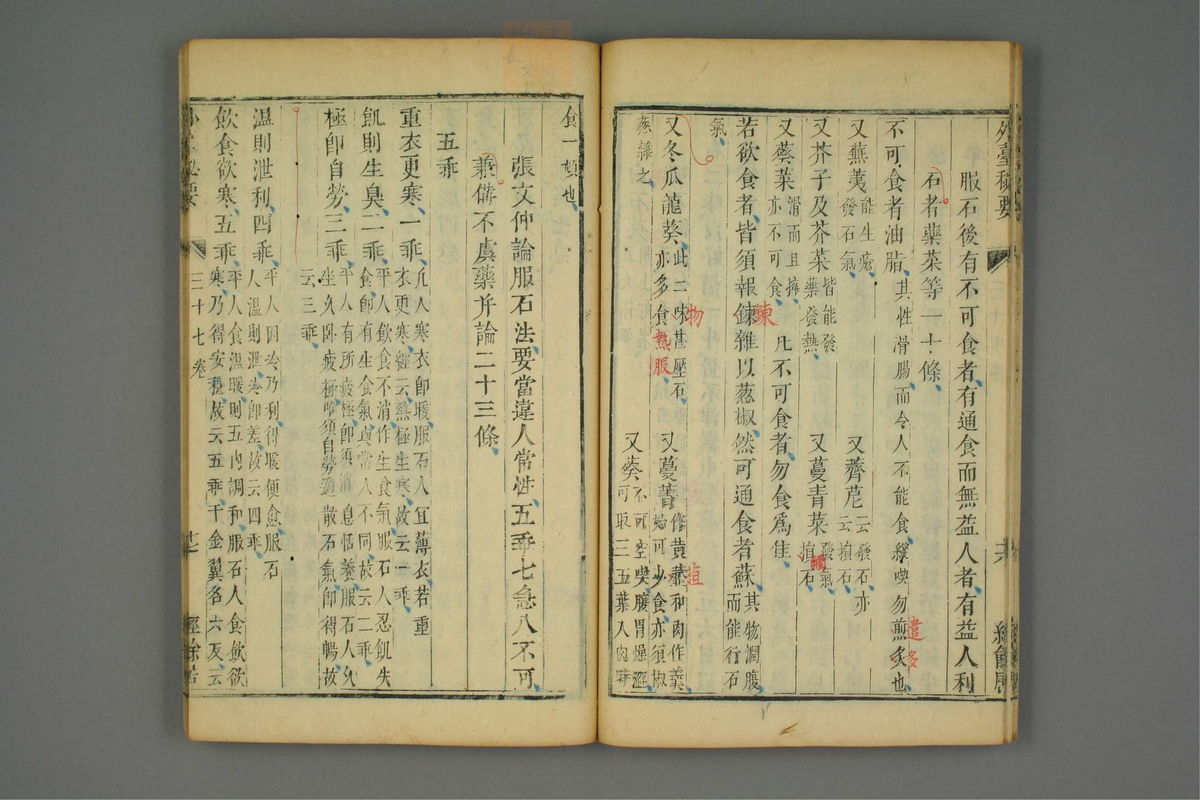 外臺秘要
服石後有不可食者有通食而無益人者有益人利
石者藥菜等一十條
不可食者油脂其性滑腸而令人不能食縱喫勿煎炙也
遣多
又蕪荑能生瘡發石氣
又薺苨云發石亦云損石
又芥子及芥菜皆能發藥發熱
又蔓青菜發氣損石
觸
又葵菜滑而且擁亦不可食
凡不可食者勿食爲佳
若欲食者皆須報鍊雜以葱椒然可通食者蘇其物潤腹而能行石氣
鍊
又冬瓜龍葵此二味甚壓石亦多食熱服
物
又蔓菁作黄虀和肉作羹始可少食亦須椒葱雜之
殖
又葵不可空喫腹胃燥澀可取三五葉入肉時
食一頓也
張文仲論服石法要當違人常性五乖七急八不可
兼備不虞藥并論二十三條
五乖
重衣更寒一乖凡人寒衣即暖服石人宜薄衣若重衣更寒經云熱極生寒故云一乖
飢則生臭二乖平人飲食不消作生食氣服石人忍飢失食即有生食氣與常人不同故云二乖
極即自勞三乖平人有所疲極即須消息恬養服石人久坐久卧疲極唯須自勞適散石氣即得暢故云三乖
溫則泄利四乖平人因冷乃利得暖便愈服石人溫則泄冷即差故云四乖
飲食欲寒五乖平人食溫暖則五内調和服石人食飲欲寒乃得安穩故云五乖千金翼名六反云
三十七卷
經餘居